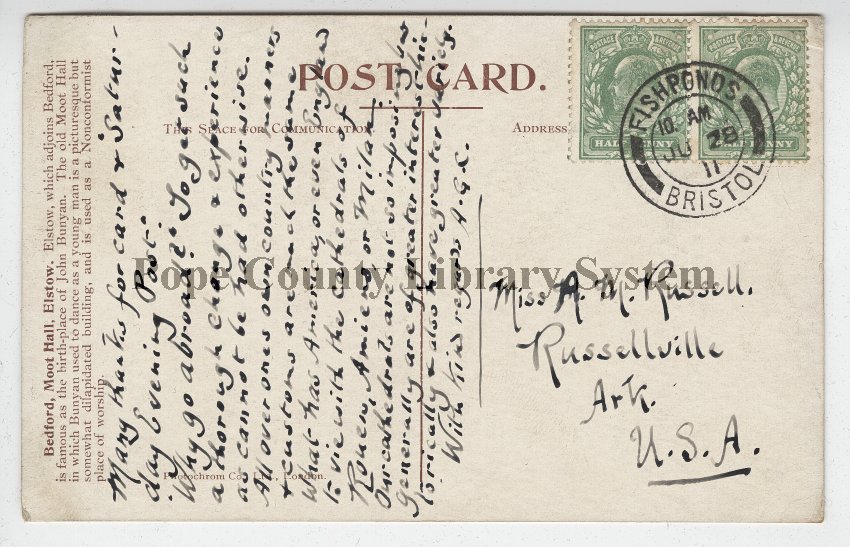 POST CARD.
THIS SPACE FOR COMMUNICATION.
ADDRESS
Bedford, Moot Hall, Elstow. Elstow, which adjoins Bedford,
is famous as the birth-place of John Bunyan. The old Moot Hall
in which Bunyan used to dance as a young man is a picturesque but
somewhat dilapidated building, and is used as a Nonconformist
place of worship.
Many thanks for card & Satur-
day Evening Post.
Why go abroad? To get such
a thorough change & experience
as cannot be had otherwise.
All over ones own country manners
& customs are much the same
What has America, or even England
to vie with the Cathedrals of
Rouen, Amiens, or Milan.
Our cathedrals are not so imposing but
generally are of greater interest his-
torically & also have greater variety.
With kind regards A.G.L.
Photochrom Co., Ltd., London.
POSTAGE REVENUE
HALFPENNY
POSTAGE REVENUE
HALFPENNY
FISHPONDS
10. AM
JU 28
11
BRISTOL
Miss A. M. Russell.
Russellville
Ark.
U.S.A.
Pope County Library System